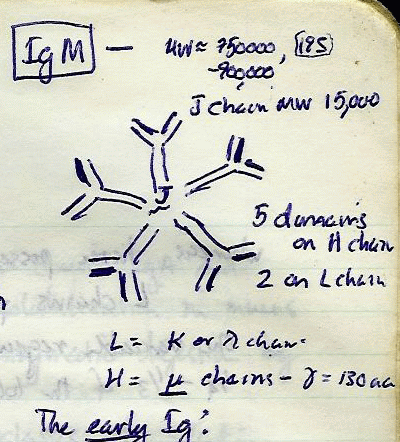 IgM — MW ≈ 750000, 19S
-900,000
J chain MW 15,000
J
5 domains
on H chain
2 on L chain
L = K or λ chain
H = μ chains - γ = 130 aa
The early Ig: